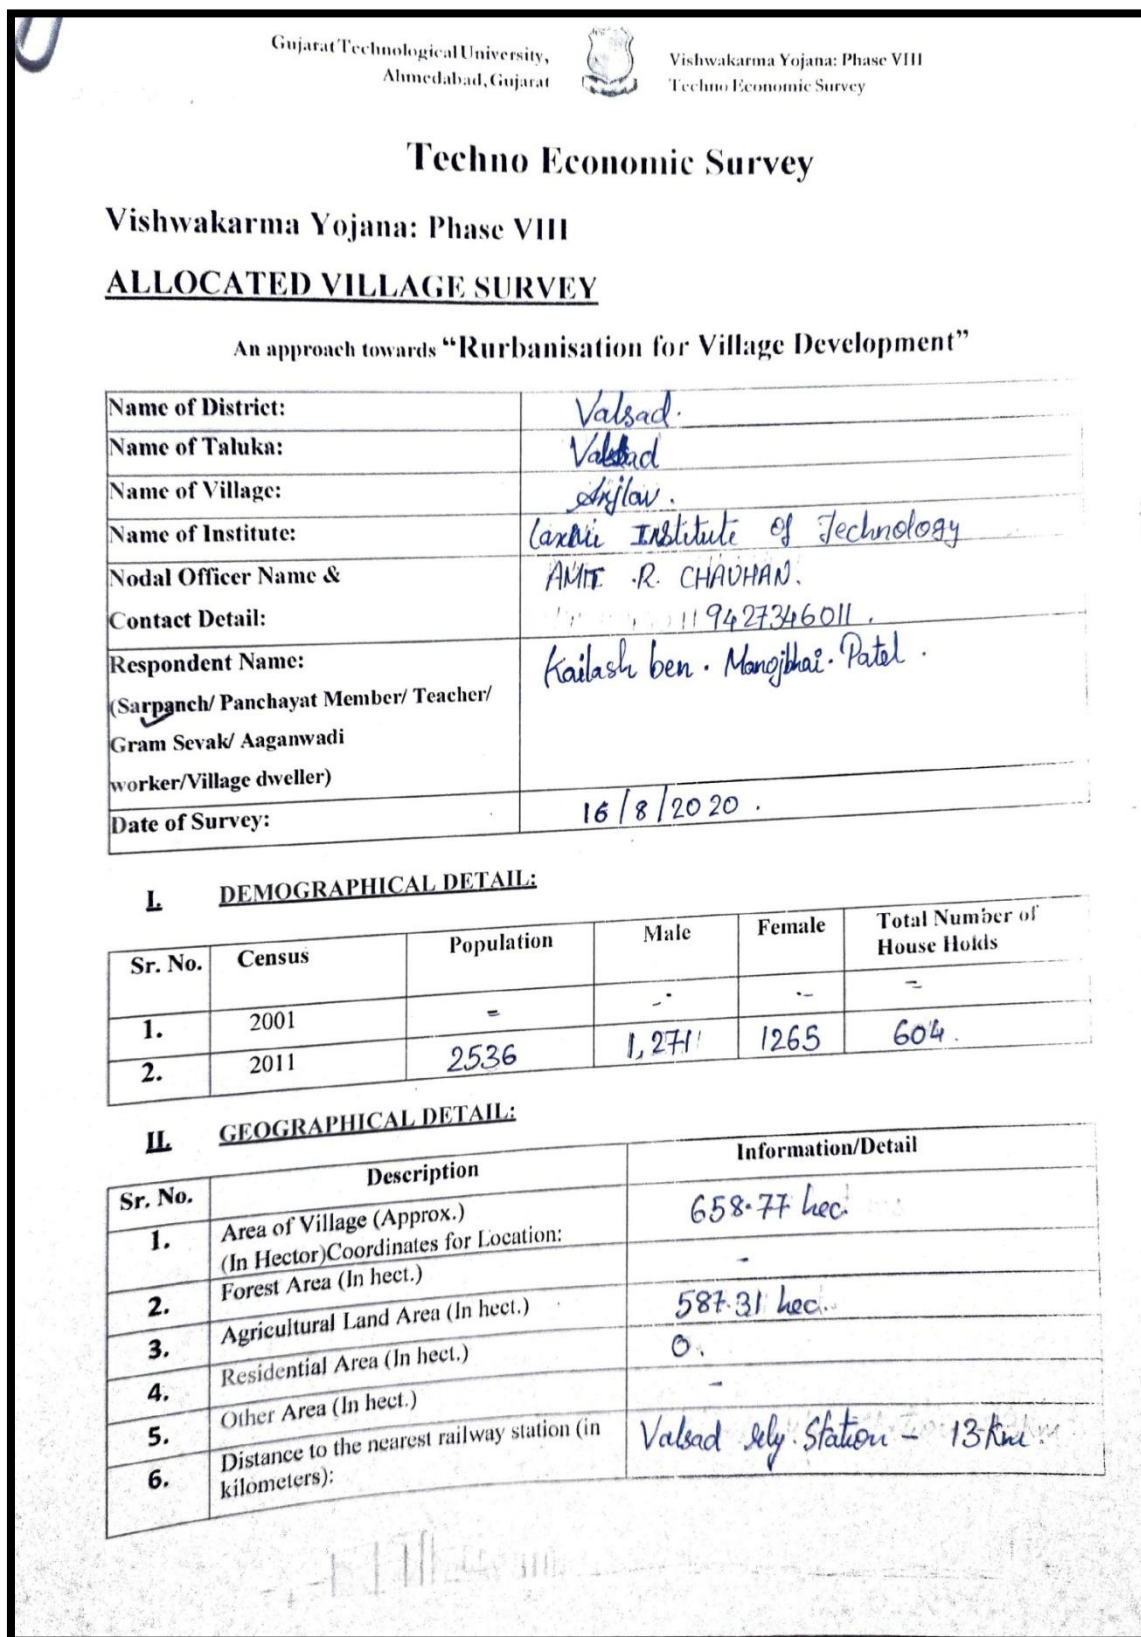 Gujarat Technological University,
Ahmedabad, Gujarat
Vishwakarma Yojana: Phase VIII
Techno Economic Survey
Techno Economic Survey
Vishwakarma Yojana: Phase VIII
ALLOCATED VILLAGE SURVEY
An approach towards “Rurbanisation for Village Development”
Name of District: Valsad.
Name of Taluka: Valsad
Name of Village: Anjlav.
Name of Institute: Laxmi Institute of Technology
Nodal Officer Name & AMIT .R. CHAUHAN.
Contact Detail: 9427346011.
Respondent Name: Kailash ben. Manojbhai. Patel.
(Sarpanch/ Panchayat Member/ Teacher/
Gram Sevak/ Aaganwadi
worker/Village dweller)
Date of Survey: 16/8/2020.
I. DEMOGRAPHICAL DETAIL:
Sr. No. Census Population Male Female Total Number of
House Holds
1. 2001 - - - -
2. 2011 2536 1,271 1265 604.
II. GEOGRAPHICAL DETAIL:
Sr. No. Description Information/Detail
1. Area of Village (Approx.) 658.77 hec.
(In Hector)Coordinates for Location:
2. Forest Area (In hect.) -
3. Agricultural Land Area (In hect.) 587.31 hec.
4. Residential Area (In hect.) 0.
5. Other Area (In hect.) -
6. Distance to the nearest railway station (in Valsad rly. Station - 13 km.
kilometers):